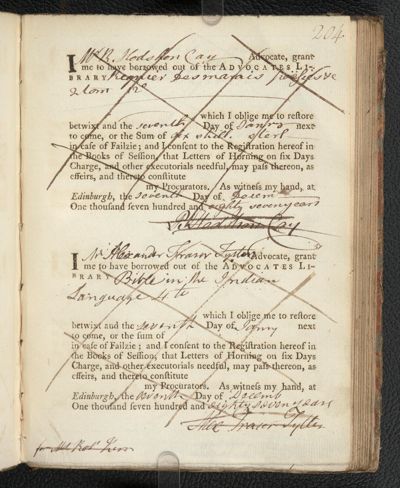 204.
I Mr R. Hodshon Cay Advocate, grant
me to have borrowed out of the ADVOCATES LI-
BRARY Regnier Desmarais
2 tom
which I oblige me to restore
betwixt and the seventh Day of Janry next
to come, or the Sum of six shill. sterl
in case of Failzie; and I consent to the Registration hereof in
the Books of Session, that Letters of Horning on six Days
Charge, and other executorials needful, may pass thereon, as
effeirs, and thereto constitute
my Procurators. As witness my hand, at
Edinburgh, the seventh Day of Decemr
One thousand seven hundred and eighty seven years
R Hodshon Cay
I Mr Alexander Fraser Tytler Advocate, grant
me to have borrowed out of the ADVOCATES LI-
BRARY Bible in the Indian
Language 4to
which I oblige me to restore
betwixt and the seventh Day of Janry next
to come, or the sum of
in case of Failzie; and I consent to the Registration hereof in
the Books of Session, that Letters of Horning on six Days
Charge, and other executorials needful, may pass thereon, as
effeirs, and thereto constitute
my Procurators. As witness my hand, at
Edinburgh, the seventh Day of Decemb
One thousand seven hundred and eighty seven years
Alex Fraser Tytler
for Mr Robt Kerr